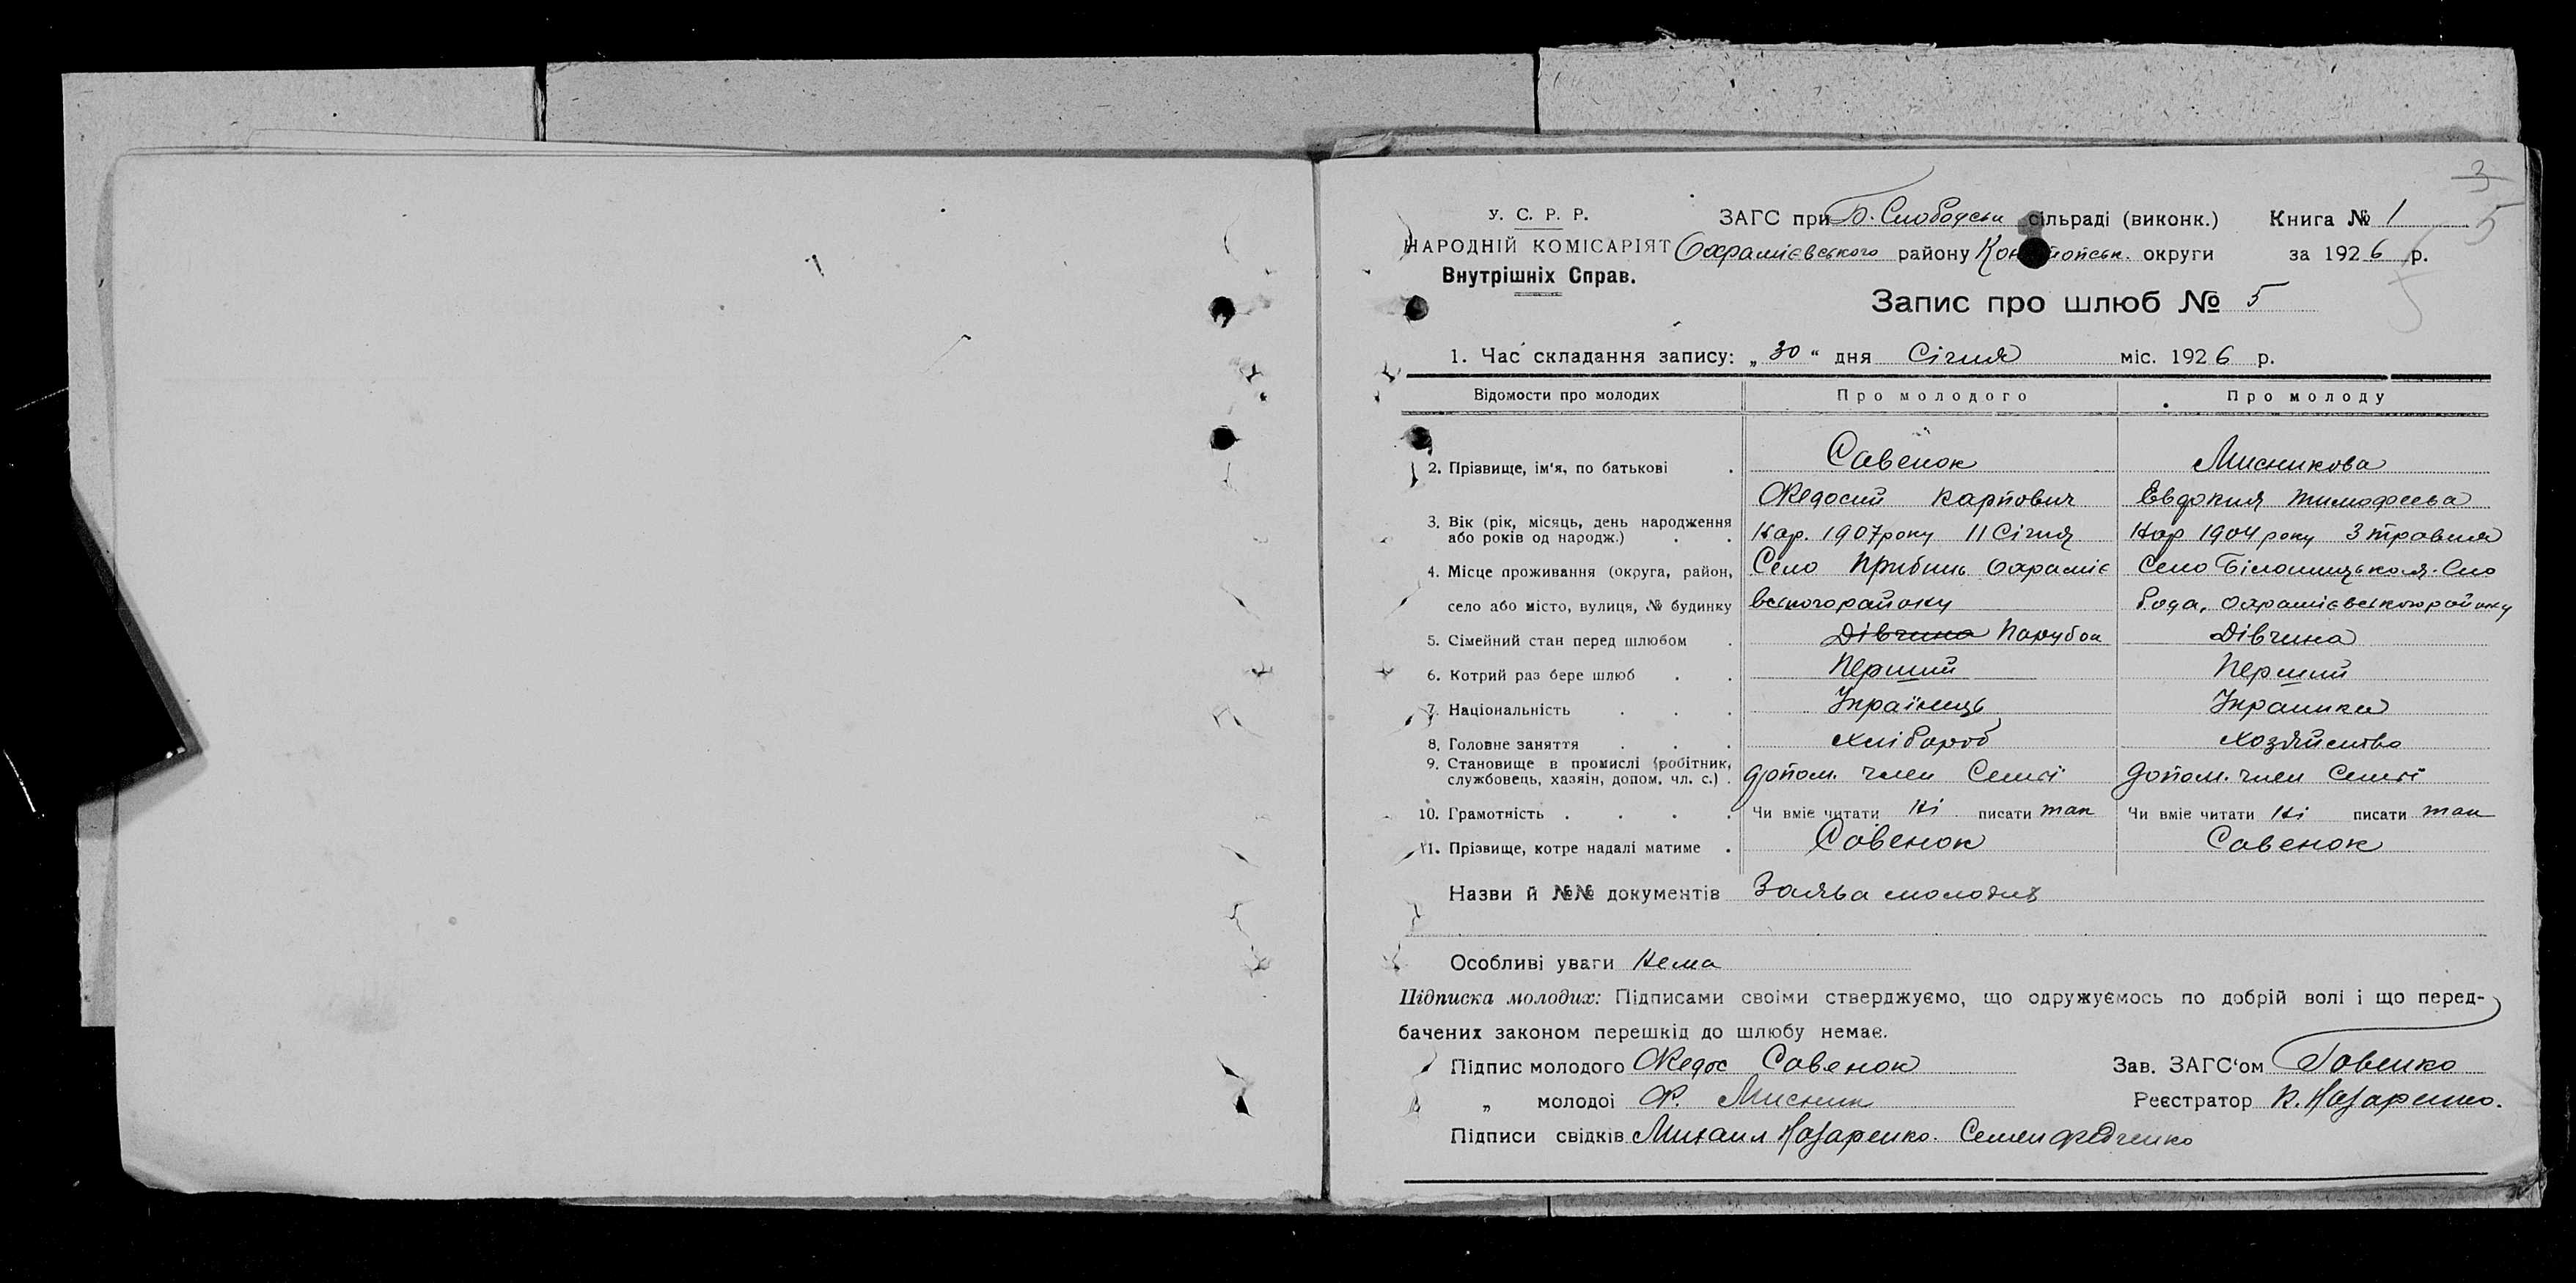 3
5
У. С. Р. Р.
НАРОДНІЙ КОМІСАРІЯТ
Внутрішніх Справ.
ЗАГС при Б. Слободськ сільраді (виконк.) Книга № 1
району Конотопськ. округи за 1926 р.
Запис про шлюб № 5
1. Час складання запису: „30“ дня Січня міс. 1926 р.
Відомости про молодих Про молодого Про молоду
2. Прізвище, ім'я, по батькові . Савенок Мисникова
Федосий Карпович Евдокия Тимофеева
3. Вік (рік, місяць, день народження
або років од народж.) . . Нар. 1907 року 11 Січня Нар 1904 року 3 травня
4. Місце проживання (округа, район, Село Прибинь Охраміє Село Білошицька-я. Сло
село або місто, вулиця, № будинку вського району бода, Охрамієвського району
5. Сімейний стан перед шлюбом . Дівчина Парубок Дівчина
6. Котрий раз бере шлюб . . Перший Перший
7. Національність . . . Українець Украинка
8. Головне заняття . . . Хлібороб Хозяйство
9. Становище в промислі (робітник,
службовець, хазяін, допом. чл. с.) . допом. член Семьї допом. член Семьї
10. Грамотність . . . . Чи вміє читати Ні писати так Чи вміє читати Ні писати так
11. Прізвище, котре надалі матиме . Савенок Савенок
Назви й №№ документів Заява молодих
Особливі уваги Нема
Підписка молодих: Підписами своіми стверджуємо, що одружуємось по добрій волі і що перед-
бачених законом перешкід до шлюбу немає.
Підпис молодого Федос Савенок Зав. ЗАГС‘ом
„ молодоі Ф. Мисник Реєстратор К. Назаренко.
Підписи свідків Михаил Назаренко. Семен Федченко